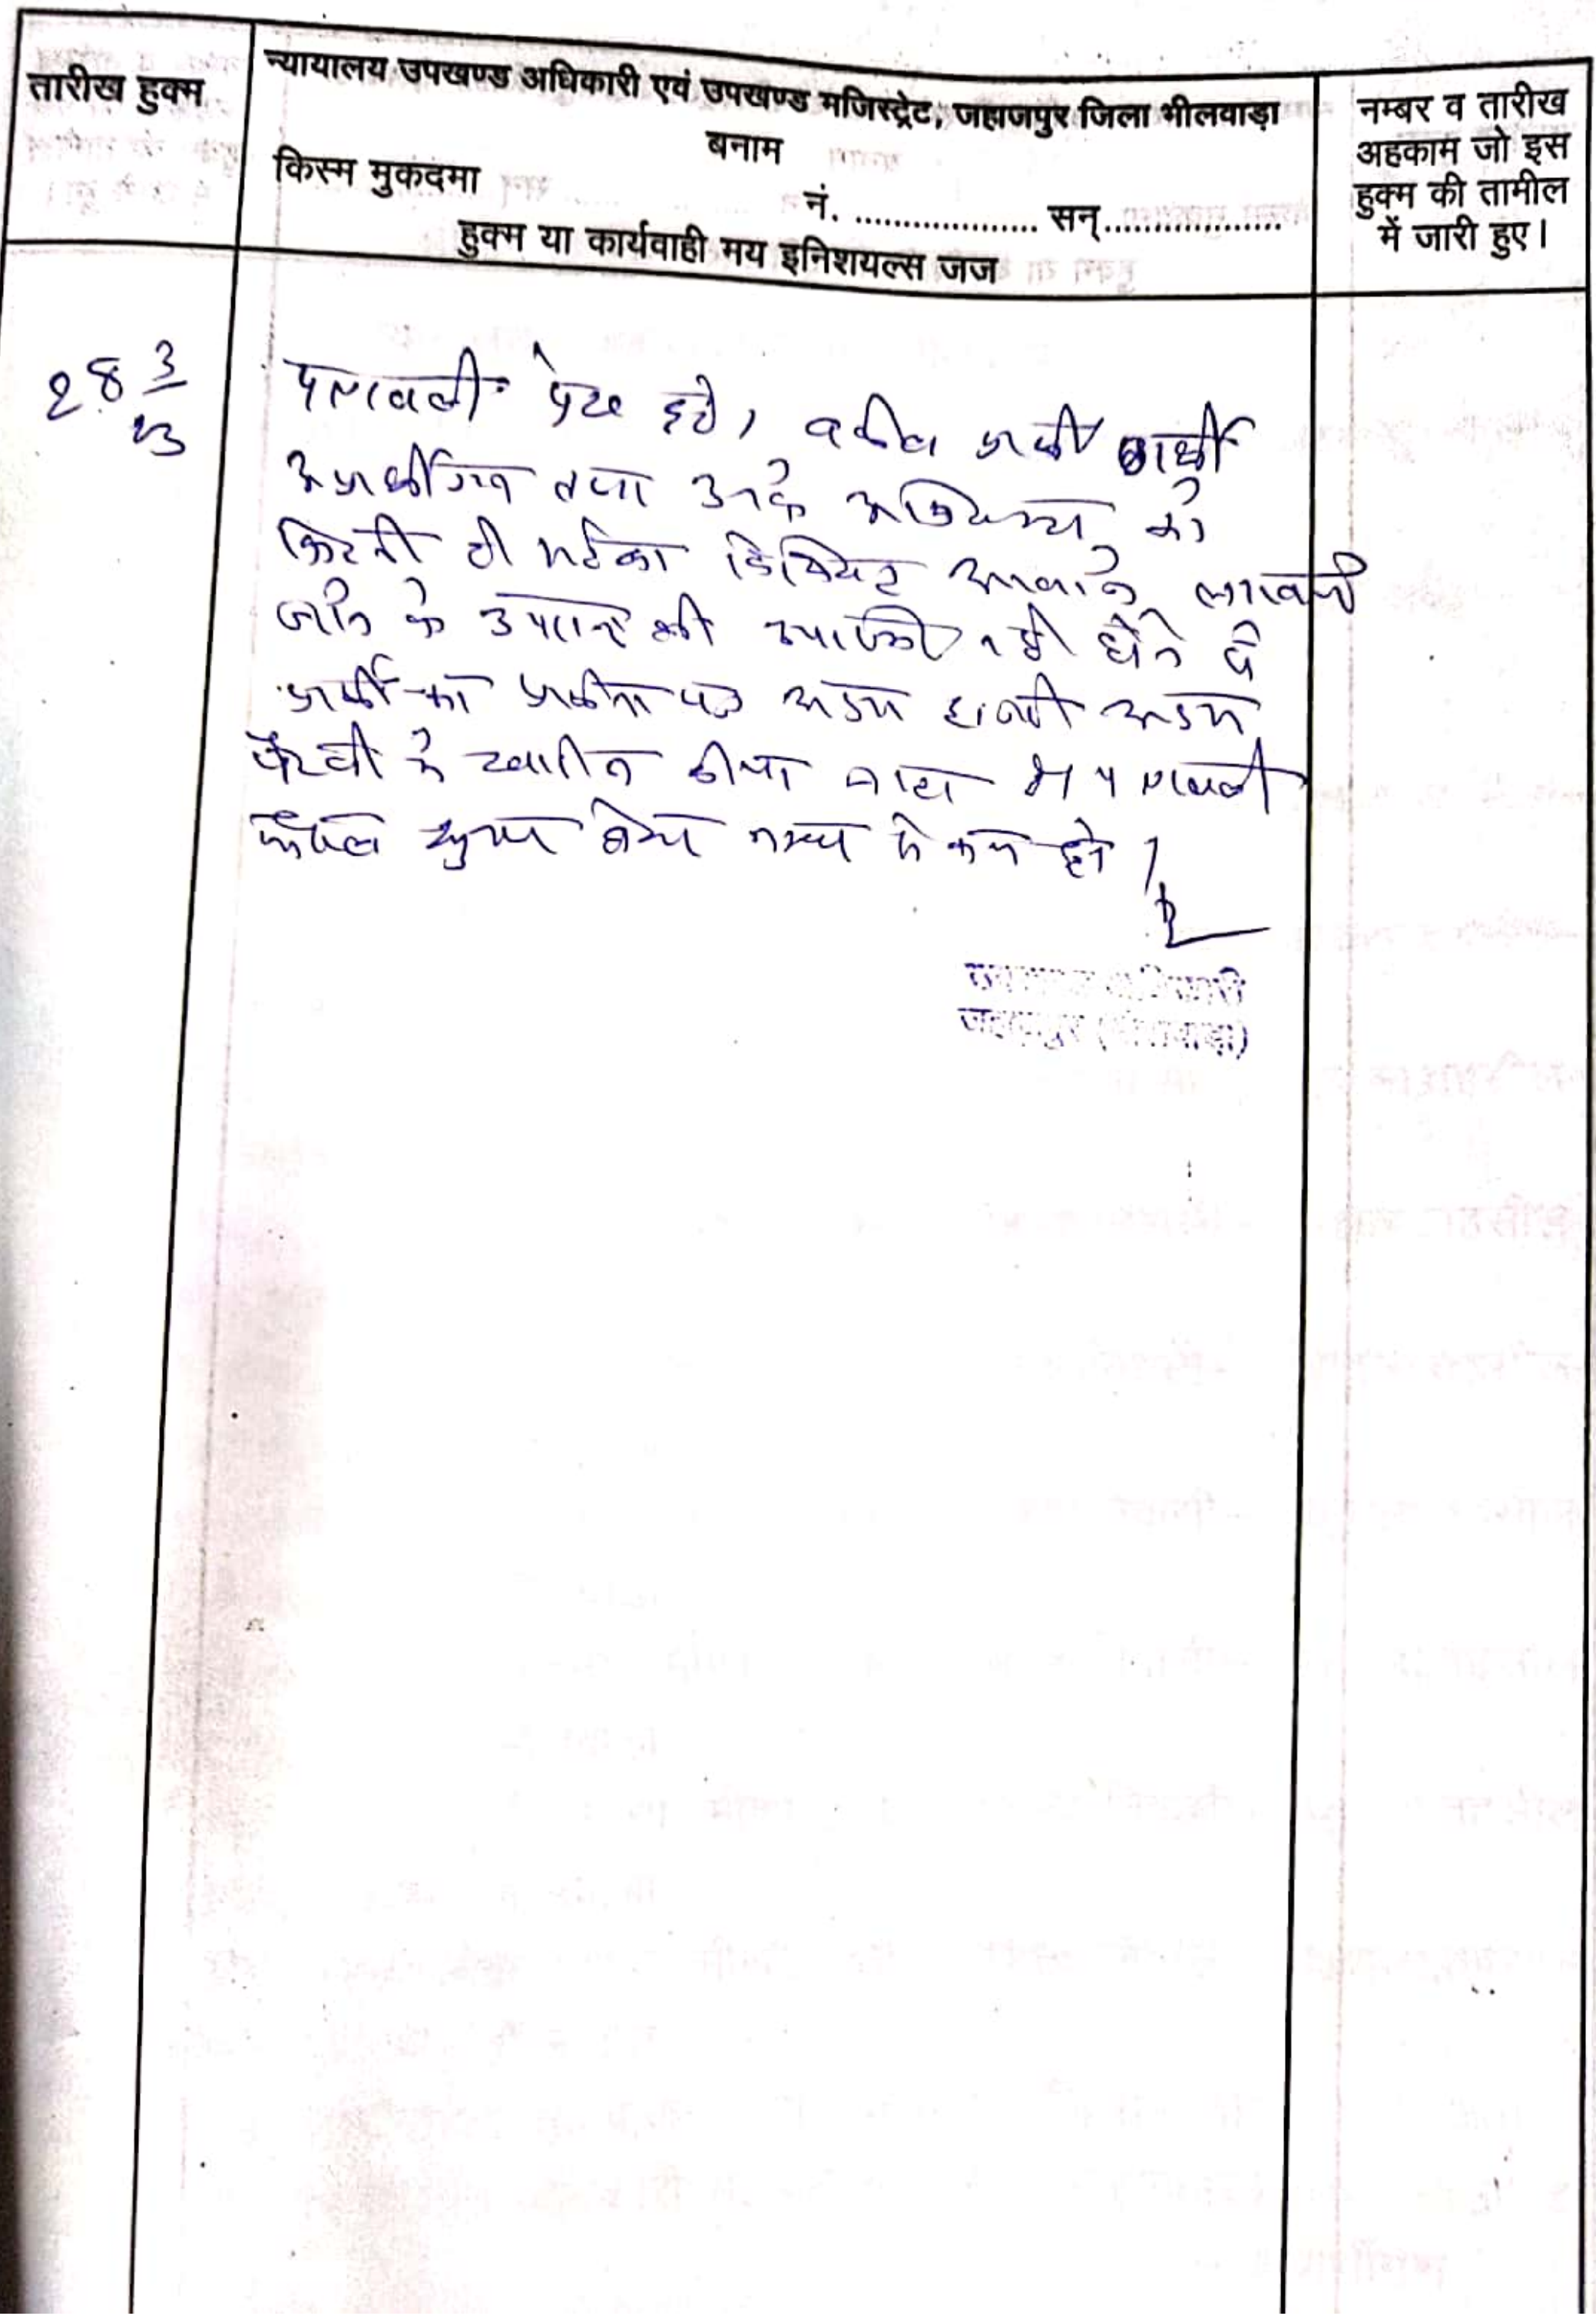 तारीख हुक्म
न्यायालय उपखण्ड अधिकारी एवं उपखण्ड मजिस्ट्रेट, जहाजपुर जिला भीलवाड़ा
बनाम
किस्म मुकदमा
नं. ................... सन्..................
हुक्म या कार्यवाही मय इनिशयल्स जज
नम्बर व तारीख
अहकाम जो इस
हुक्म की तामील
में जारी हुए।
28 3/23
पत्रावली पेश हुई, वकील प्रार्थी
अप्रार्थीगण तथा उनके को
कितनी ही
जाने के उपरान्त भी उपस्थित नही होने से
प्रार्थी का प्रार्थना पत्र अदम हाजरी अदम
पैरवी मे खारीज कीया जाता है पत्रावली
फैसल शुमार होकर नम्बर से कम हो
जहाजपुर (भीलवाड़ा)